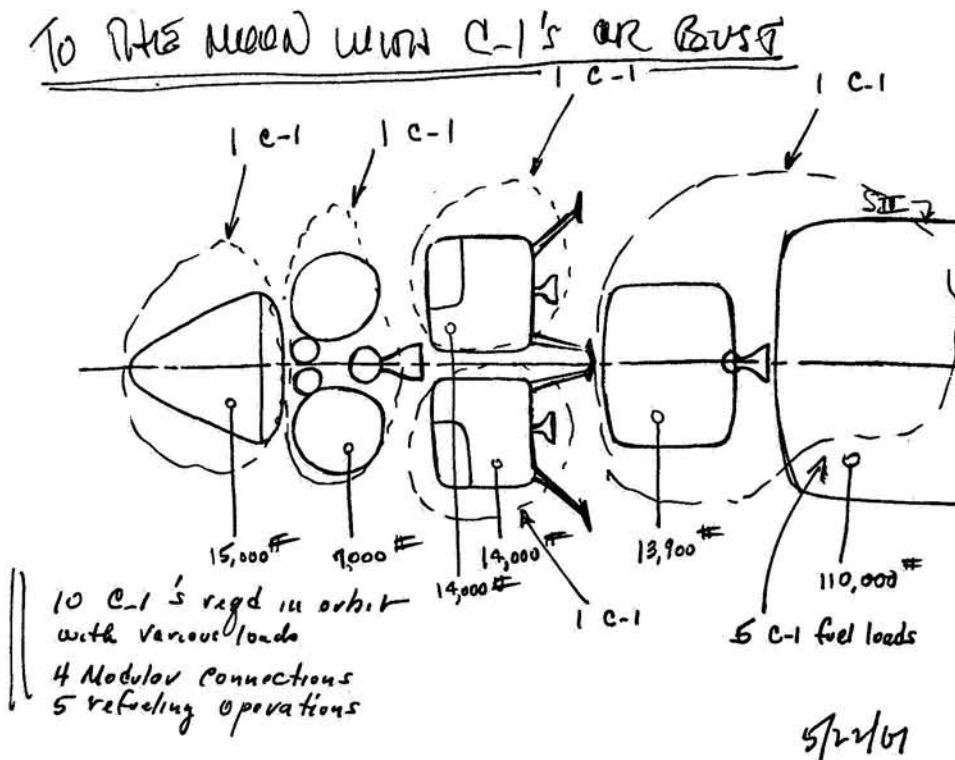 TO THE MOON WITH C-1's OR BUST
1 C-1
1 C-1
1 C-1
1 C-1
SII
15,000#
7,000#
14,000#
14,000#
13,900#
110,000#
1 C-1
5 C-1 fuel loads
10 C-1's reqd in orbit
with various loads
4 Modular Connections
5 refueling operations
5/22/61